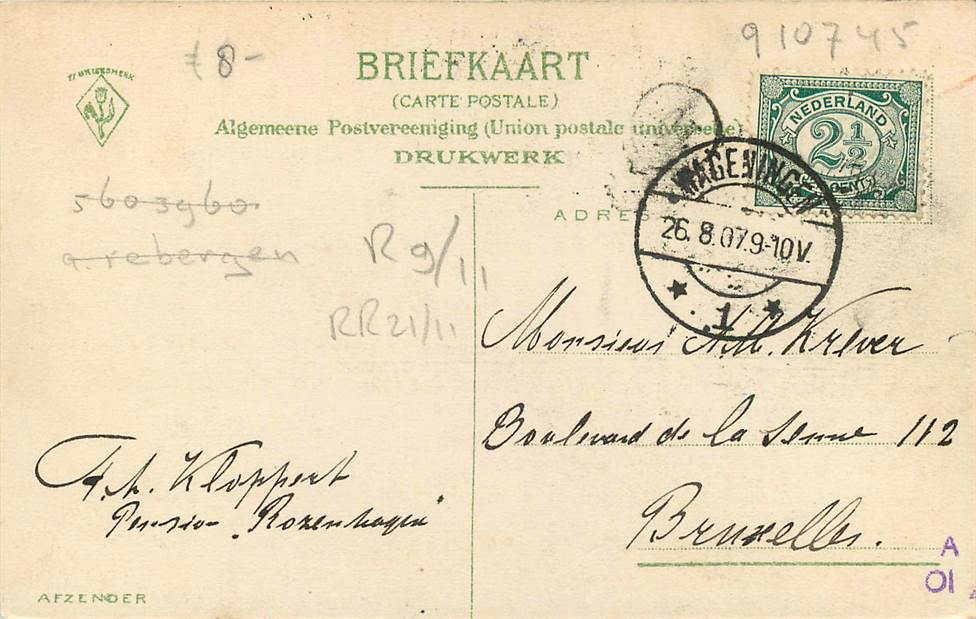 910745
£8-
BRIEFKAART
(CARTE POSTALE)
Algemeene Postvereeniging (Union postale universelle)
DRUKWERK
NEDERLAND
2½
CENT
WAGENINGEN
26.8.07.9-10V.
1
5603960
a. rebergen
R9/11
RR21/11
ADRES
Monsieur A.M. Krever
Boulevard de la Senne 112
Bruxelles.
F.A. Kloppert
Pension "Rozenhagen"
A
01
AFZENDER